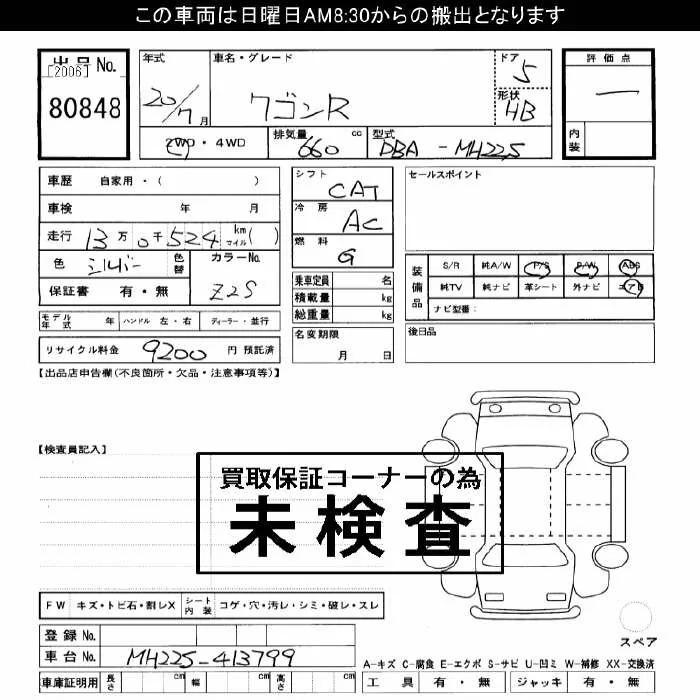 この車両は日曜日AM8:30からの搬出となります
出品No.
[2006]
80848
年式 20/7月
車名・グレード ワゴンR
ドア 5
形状 HB
評価点 ー
内装
2WD・4WD
排気量 660 cc
型式 DBA-MH22S
車歴 自家用・( )
車検 年 月
走行 13万0千524 km マイル( )
色 シルバー 色替 カラーNo. Z2S
保証書 有・無
シフト CAT
冷房 AC
燃料 G
乗車定員 名
積載量 kg
総重量 kg
セールスポイント
装備品 S/R 純A/W P/S P/W ABS
純TV 純ナビ 革シート 外ナビ エアB
ナビ型番:
モデル年式 年 ハンドル 左・右 ディーラー・並行
名変期限 月 日
後日品
リサイクル料金 9200 円 預託済
【出品店申告欄(不良箇所・欠品・注意事項等)】
【検査員記入】
買取保証コーナーの為
未検査
FW キズ・トビ石・割レX シート内装 コゲ・穴・汚レ・シミ・破レ・スレ
登録No.
車台No. MH22S-413799
スペア
A-キズ C-腐食 E-エクボ S-サビ U-凹ミ W-補修 XX-交換済
車庫証明用 長さ cm 幅 cm 高さ cm
工具 有・無 ジャッキ 有・無